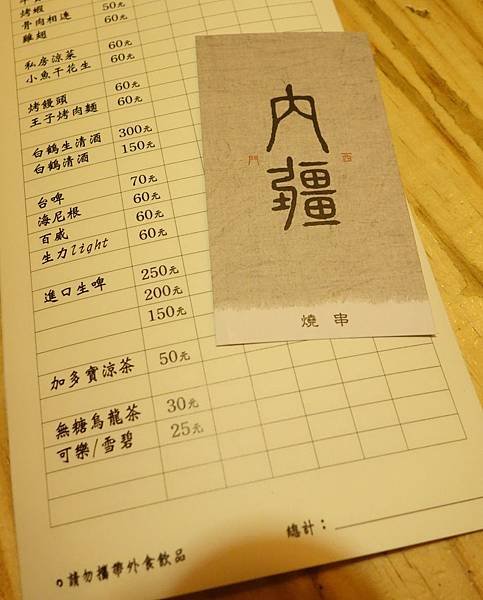 烤蝦
骨肉相連 50元
雞翅 60元
私房涼菜 60元
小魚干花生 60元
烤饅頭 60元
王子烤肉麵 60元
白鶴生清酒 300元
白鶴清酒 150元
台啤 70元
海尼根 60元
百威 60元
生力light 60元
進口生啤 250元
200元
150元
加多寶涼茶 50元
無糖烏龍茶 30元
可樂/雪碧 25元
總計：
。請勿攜帶外食飲品
內疆
西門
燒串